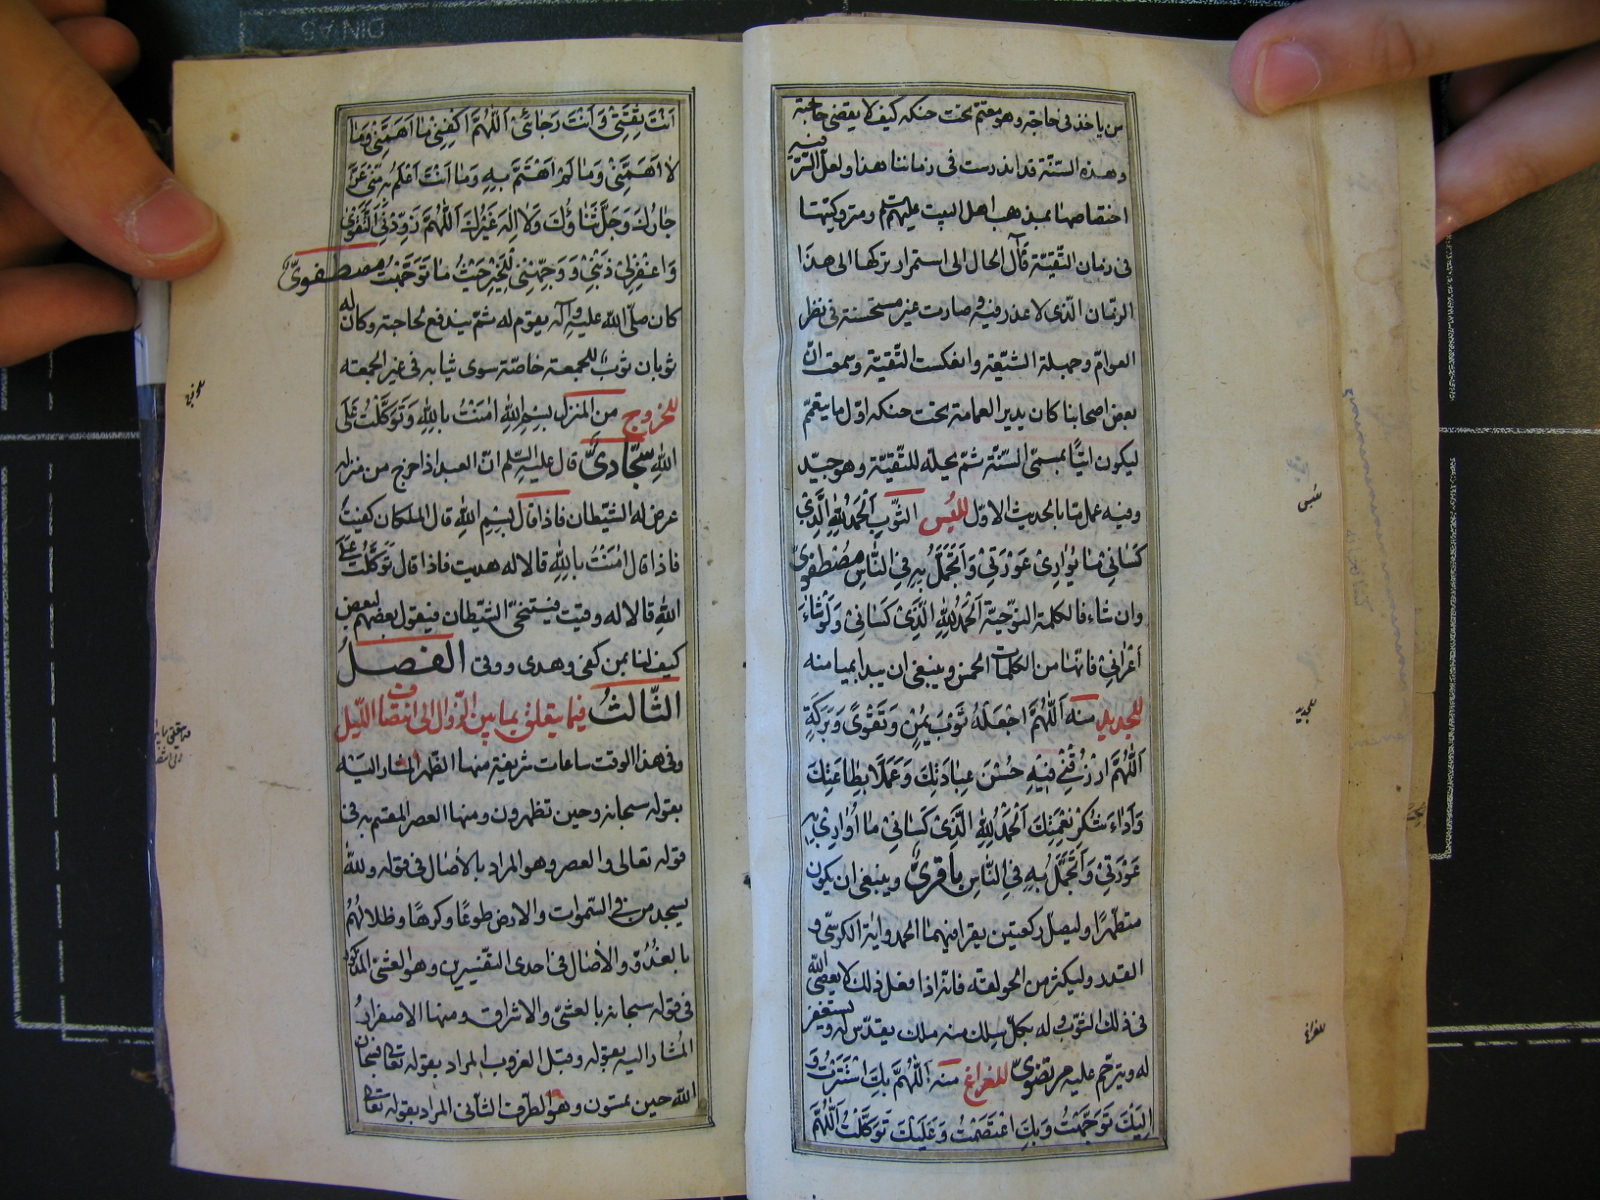 من ياخذ في حاجة وهو معتم تحت حنكه كيف لا يقضى حاجته
وهذه السنّة قد اندرست في زماننا هذا ولعلّ السّر فيه
اختصاصها بمذهب اهل البيت عليهم السلم ومتروكيّتها
في زمان التّقيّة فآل الحال الى استمرار تركها الى هذا
الزمان الّذى لا عذر فيه وصارت غير مستحسنة فى نظر
العوامّ وجهلة الشيعة وانعكست التّقيّة وسمعت انّ
بعض اصحابنا كان يدير العمامة تحت حنكه اوّل ما يتعمّم
ليكون اتيًا بمسمّى السّنّة ثمّ يحلّه للتقيّة وهو جيّد
وفيه عمل ما بالحديث الاول للبس الثّوب اَلْحَمْدُ لِلّٰهِ الَّذِي
كَسَانِي مَا يُوَارِى عَوْرَتِي وَاَتَجَمَّلُ بِهِ فِي النَّاسِ مصطفوىّ
وان شاء فالكلمة النوحيّة اَلْحَمْدُ لِلّٰهِ الَّذِي كَسَانِي وَلَوْ شَاءَ
اَعْرَانِي فانّها من الكلمات الخمس وينبغى ان يبدا بميامنه
للجديد منه اَللّٰهُمَّ اجْعَلْهُ ثَوْبَ يُمْنٍ وَتَقْوًى وَبَرَكَةٍ
اَللّٰهُمَّ ارْزُقْنِي فِيهِ حُسْنَ عِبَادَتِكَ وَعَمَلًا بِطَاعَتِكَ
وَاَدَاءَ شُكْرِ نِعْمَتِكَ اَلْحَمْدُ لِلّٰهِ الَّذِي كَسَانِي مَا اُوَارِي بِهِ
عَوْرَتِي وَاَتَجَمَّلُ بِهِ فِي النَّاسِ باقرىّ وينبغى ان يكون
متطهّرًا وليصلّ ركعتين يقرا فيهما الحمد واية الكرسّى و
القدر وليكثر من الحولقة فانّه اذا فعل ذلك لا يعصى الله
في ذلك الثوب وله بكلّ سلك منه ملك يقدّس له ويستغفر
له ويترحّم عليه مرتضوىّ للفراغ منه اَللّٰهُمَّ بِكَ اسْتَتَرْتُ وَ
اِلَيْكَ تَوَجَّهْتُ وَبِكَ اعْتَصَمْتُ وَعَلَيْكَ تَوَكَّلْتُ اَللّٰهُمَّ
للبس
للجديد
للفراغ
اَنْتَ ثِقَتِي وَاَنْتَ رَجَائِي اَللّٰهُمَّ اكْفِنِي مَا اَهَمَّنِي وَمَا
لَا اَهَمَّنِي وَمَا لَمْ اَهْتَمَّ بِهِ وَمَا اَنْتَ اَعْلَمُ بِهِ مِنِّي عَزَّ
جَارُكَ وَجَلَّ ثَنَاؤُكَ وَلَا اِلٰهَ غَيْرُكَ اَللّٰهُمَّ زَوِّدْنِي التَّقْوَى
وَاغْفِرْ لِي ذَنْبِي وَوَجِّهْنِي لِلْخَيْرِ حَيْثُ مَا تَوَجَّهْتُ مصطفوىّ
كان صلّى الله عليه وآله يقوم له ثمّ يندفع لحاجته وكان له
ثوبان ثوب للجمعة خاصّة سوى ثيابه في غير الجمعة
للخروج من المنزل بِسْمِ اللهِ اٰمَنْتُ بِاللهِ وَتَوَكَّلْتُ عَلَى
اللهِ سجّادىّ قال عليه السّلم انّ العبد اذا خرج من منزله
عرض له الشّيطان فاذا قال بسم الله قال الملكان كفيت
فاذا قال اٰمنت بالله قالا له هديت فاذا قال توكّلت على
الله قالا له وقيت فيتنحّى الشّيطان فيقول بعضهم لبعض
كيف لنا بمن كفى وهدى ووقى الفصل
الثّالث فيما يتعلق بما بين الزّوال الى انتصاف اللّيل
وفى هذا الوقت ساعات شريفة منها الظّهر المشار اليه
بقوله سبحانه وحين تظهرون ومنها العصر المقسم به فى
قوله تعالى والعصر وهو المراد بالاٰصال فى قوله ولله
يسجد من فى السّموات والارض طوعًا وكرهًا وظلالهم
بالغُدُوّ والاٰصال فى احدى التّفسيرين وهو العشىّ المذكور
فى قوله سبحانه بالعشىّ والاشراق ومنها الاصفرار
المشار اليه بقوله وقبل الغروب المراد بقوله تعالى فسبحان
الله حين تمسون وهو الطرف الثانى المراد بقوله تعالى
للخروج